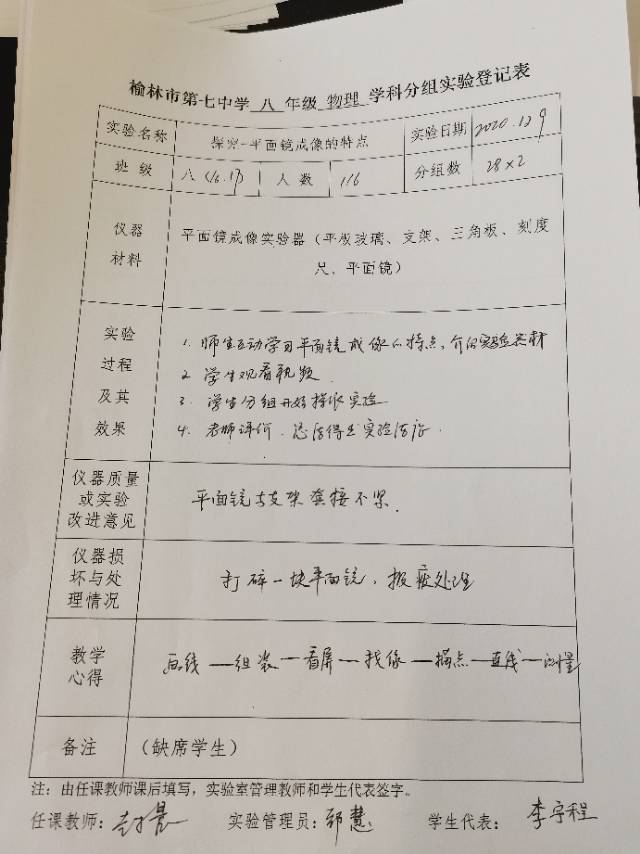 榆林市第七中学 八 年级 物理 学科分组实验登记表
实验名称 探究-平面镜成像的特点 实验日期 2020.12.9
班级 八(16.17) 人数 116 分组数 28×2
仪器材料 平面镜成像实验器（平板玻璃、支架、三角板、刻度
尺、平面镜）
实验过程及其效果
1. 师生互动学习平面镜成像的特点，介绍实验器材
2 学生观看视频
3. 学生分组开始探究实验
4. 老师评价.总结得出实验结论.
仪器质量或实验改进意见 平面镜与支架接不紧.
仪器损坏与处理情况 打碎一块平面镜，报废处理
教学心得 画线—组装—看屏—找像—描点—连线—测量
备注 （缺席学生）
注：由任课教师课后填写，实验室管理教师和学生代表签字。
任课教师： 实验管理员：郭慧 学生代表：李宇程